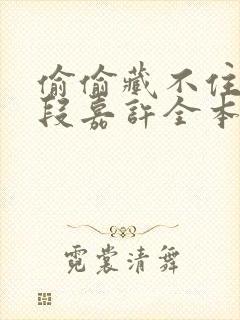 偷偷藏不住
段嘉許全本
霓裳清舞